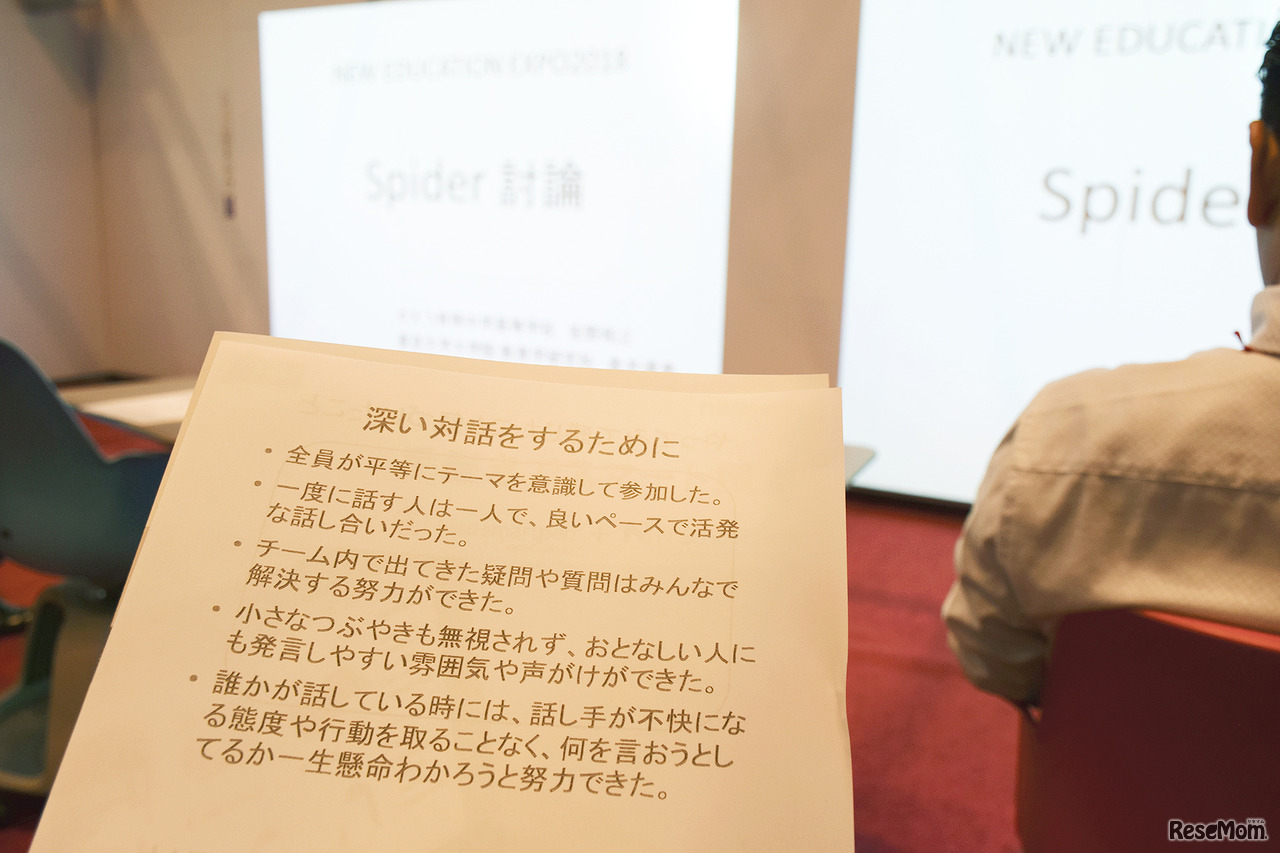 NEW EDUCATION EXPO2018
Spider 討論
NEW EDUCATI
Spide
深い対話をするために
• 全員が平等にテーマを意識して参加した。
• 一度に話す人は一人で、良いペースで活発
な話し合いだった。
• チーム内で出てきた疑問や質問はみんなで
解決する努力ができた。
• 小さなつぶやきも無視されず、おとなしい人に
も発言しやすい雰囲気や声がけができた。
• 誰かが話している時には、話し手が不快にな
る態度や行動を取ることなく、何を言おうとし
てるか一生懸命わかろうと努力できた。
ReseMom